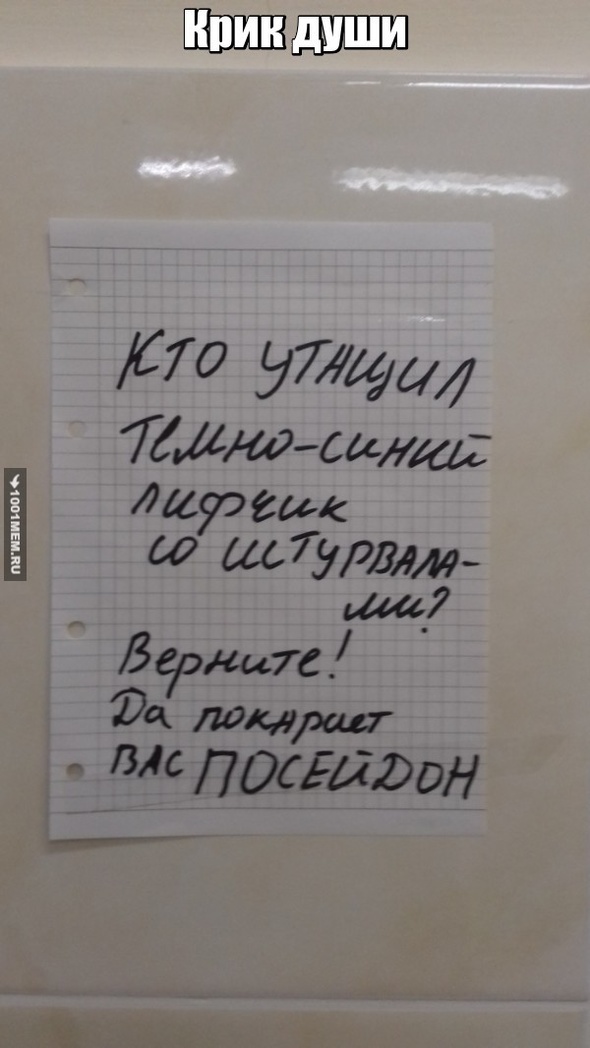 Крик души
КТО УТАЩИЛ
ТЕМНО-СИНИЙ
ЛИФЧИК
СО ШТУРВАЛА-
МИ?
Верните!
Да покарает
ВАС ПОСЕЙДОН
1001MEM.RU